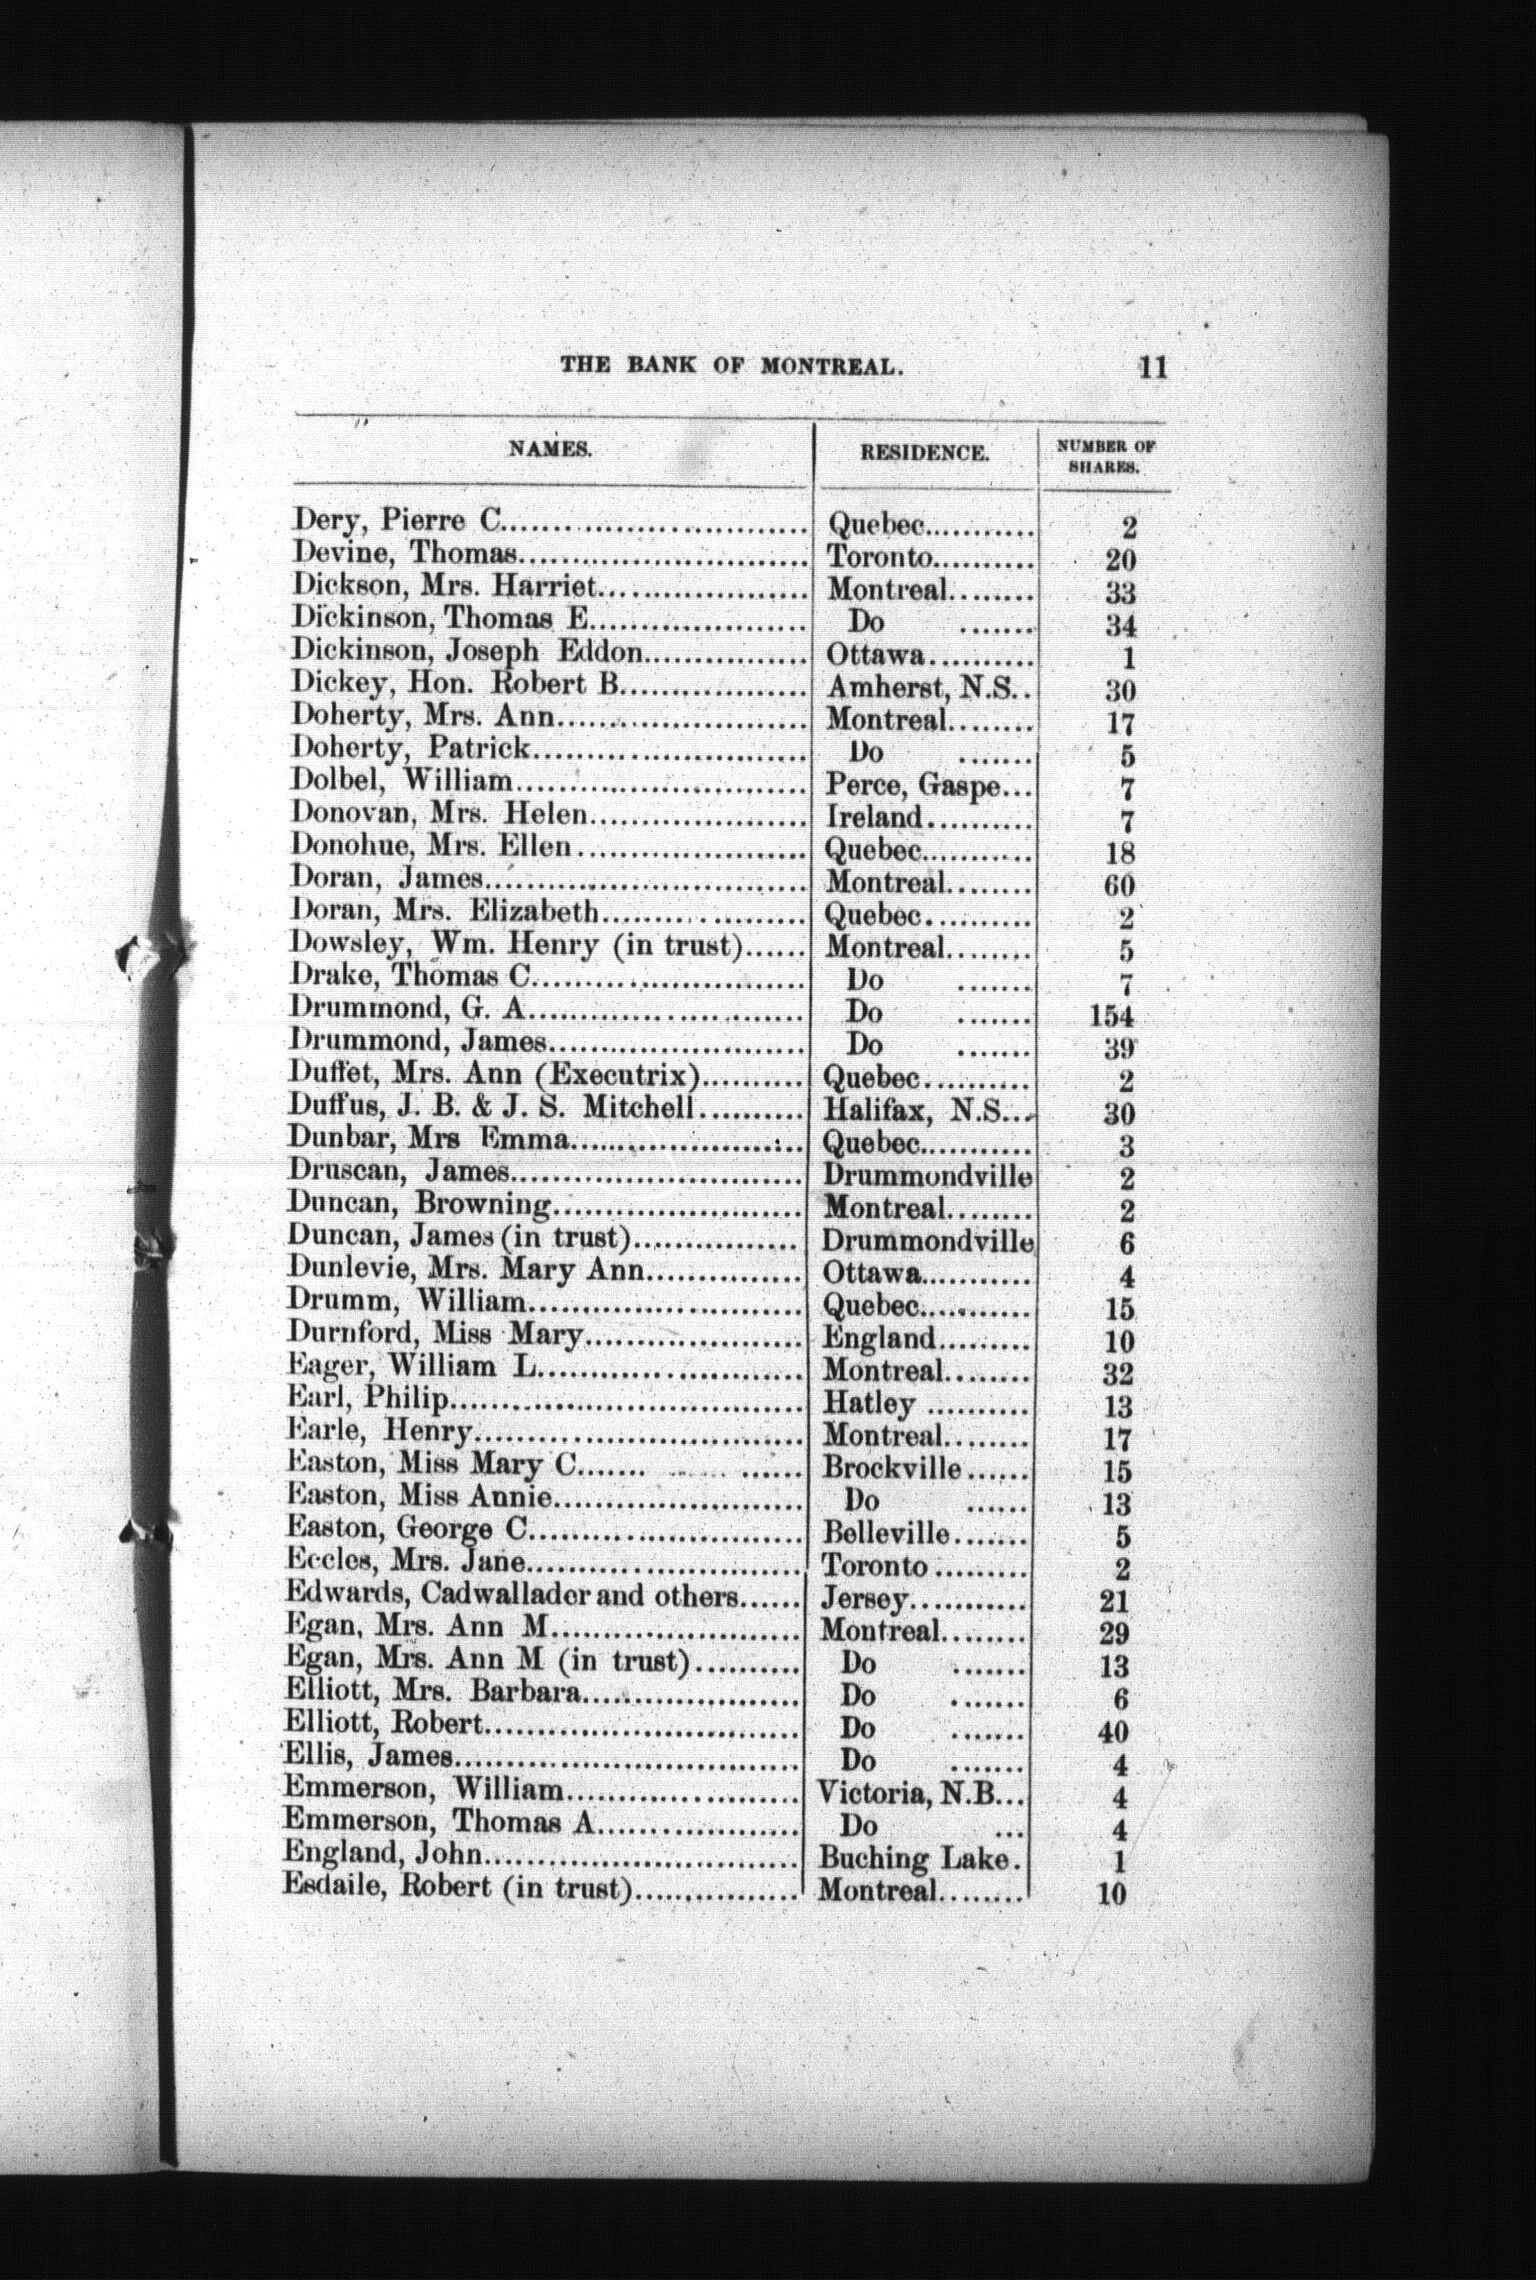 THE BANK OF MONTREAL. 11
NAMES. RESIDENCE. NUMBER OF SHARES.
Dery, Pierre C............................ Quebec........... 2
Devine, Thomas............................ Toronto.......... 20
Dickson, Mrs. Harriet.................... Montreal........ 33
Dickinson, Thomas E..................... Do ....... 34
Dickinson, Joseph Eddon............... Ottawa.......... 1
Dickey, Hon. Robert B.................. Amherst, N.S.. 30
Doherty, Mrs. Ann........................ Montreal........ 17
Doherty, Patrick.......................... Do ....... 5
Dolbel, William............................ Perce, Gaspe... 7
Donovan, Mrs. Helen..................... Ireland.......... 7
Donohue, Mrs. Ellen...................... Quebec........... 18
Doran, James............................... Montreal........ 60
Doran, Mrs. Elizabeth.................... Quebec.......... 2
Dowsley, Wm. Henry (in trust)...... Montreal........ 5
Drake, Thomas C.......................... Do ....... 7
Drummond, G. A.......................... Do ....... 154
Drummond, James......................... Do ....... 39
Duffet, Mrs. Ann (Executrix).......... Quebec.......... 2
Duffus, J. B. & J. S. Mitchell.......... Halifax, N.S... 30
Dunbar, Mrs Emma....................... Quebec........... 3
Druscan, James............................ Drummondville 2
Duncan, Browning........................ Montreal........ 2
Duncan, James (in trust)................ Drummondville 6
Dunlevie, Mrs. Mary Ann............... Ottawa........... 4
Drumm, William.......................... Quebec........... 15
Durnford, Miss Mary..................... England......... 10
Eager, William L.......................... Montreal........ 32
Earl, Philip.................................. Hatley .......... 13
Earle, Henry................................ Montreal........ 17
Easton, Miss Mary C....... ...... ...... Brockville...... 15
Easton, Miss Annie........................ Do ...... 13
Easton, George C.......................... Belleville....... 5
Eccles, Mrs. Jane.......................... Toronto ......... 2
Edwards, Cadwallader and others...... Jersey........... 21
Egan, Mrs. Ann M........................ Montreal........ 29
Egan, Mrs. Ann M (in trust).......... Do ....... 13
Elliott, Mrs. Barbara..................... Do ....... 6
Elliott, Robert.............................. Do ....... 40
Ellis, James.................................. Do ....... 4
Emmerson, William...................... Victoria, N.B... 4
Emmerson, Thomas A................... Do ... 4
England, John.............................. Buching Lake. 1
Esdaile, Robert (in trust)................ Montreal........ 10